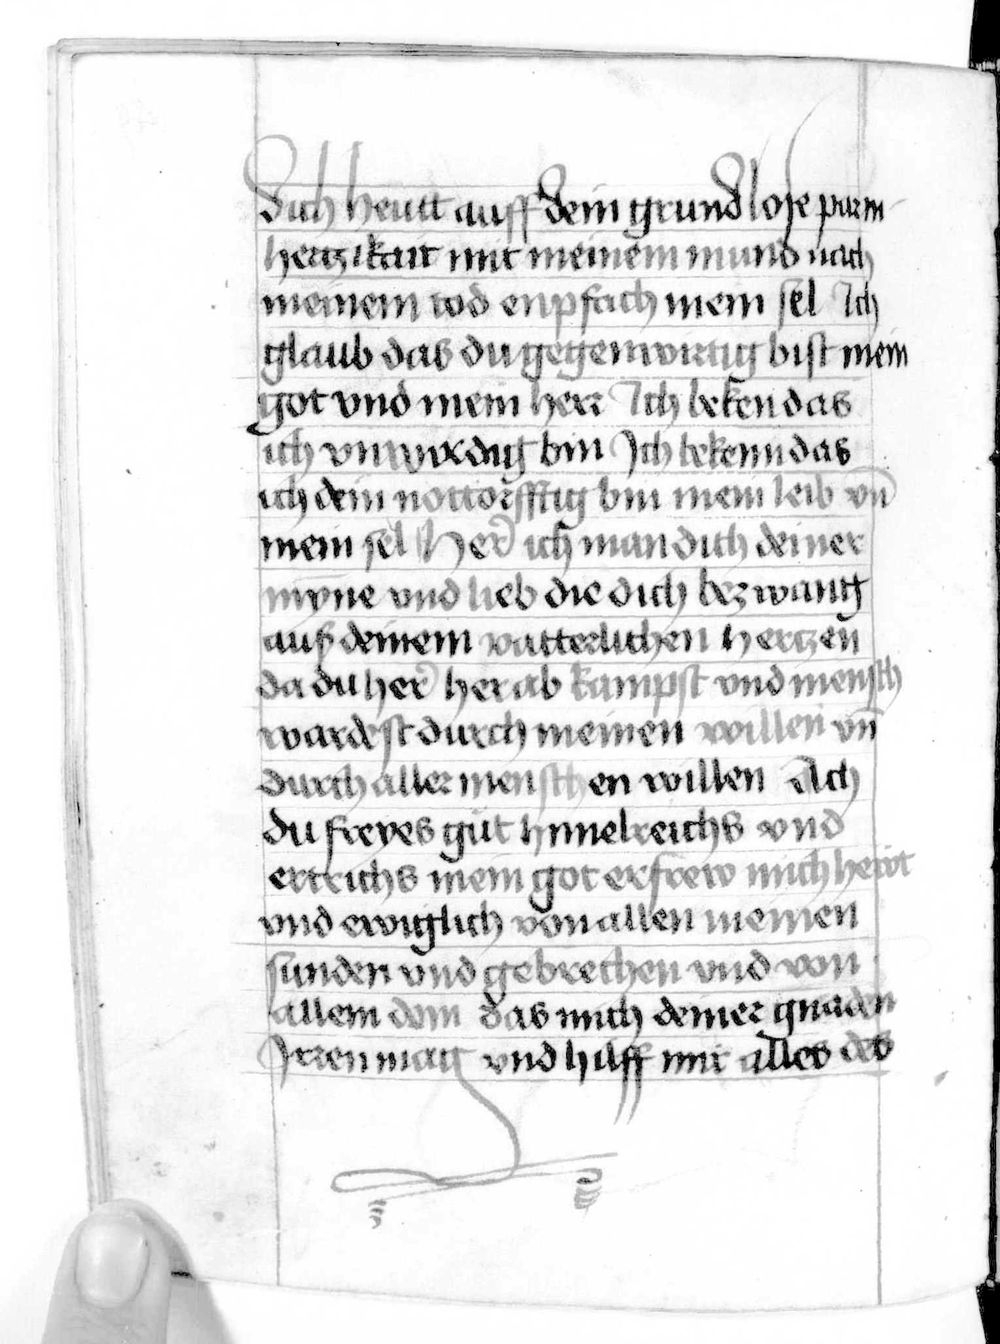 dich heutt auff dein grundlose parm
hertzikait mit meinem mund nach
meinem tod enpfach mein sel Ich
glaub das du gegenwirtig bist mein
got vnd mein herr Ich beken das
ich vnwirdig bin Ich bekenn das
ich dein nottorfftig bin mein leib vn̄
mein sel Her ich man dich deiner
mỹne vnd lieb die dich bezwang
auß deinem vatterlichen hertzen
da du her her ab kampst vnd mensch
wardest durch meinen willen vn̄
durch aller menschen willen Ach
du freyes gut himelreichs vnd
ertrichs mein got erfrew mich hewt
vnd ewiglich von allen meinen
sunden vnd gebrechen vnd von
allem dem das mich deiner gnaden
Irren mag vnd hilff mir alles des